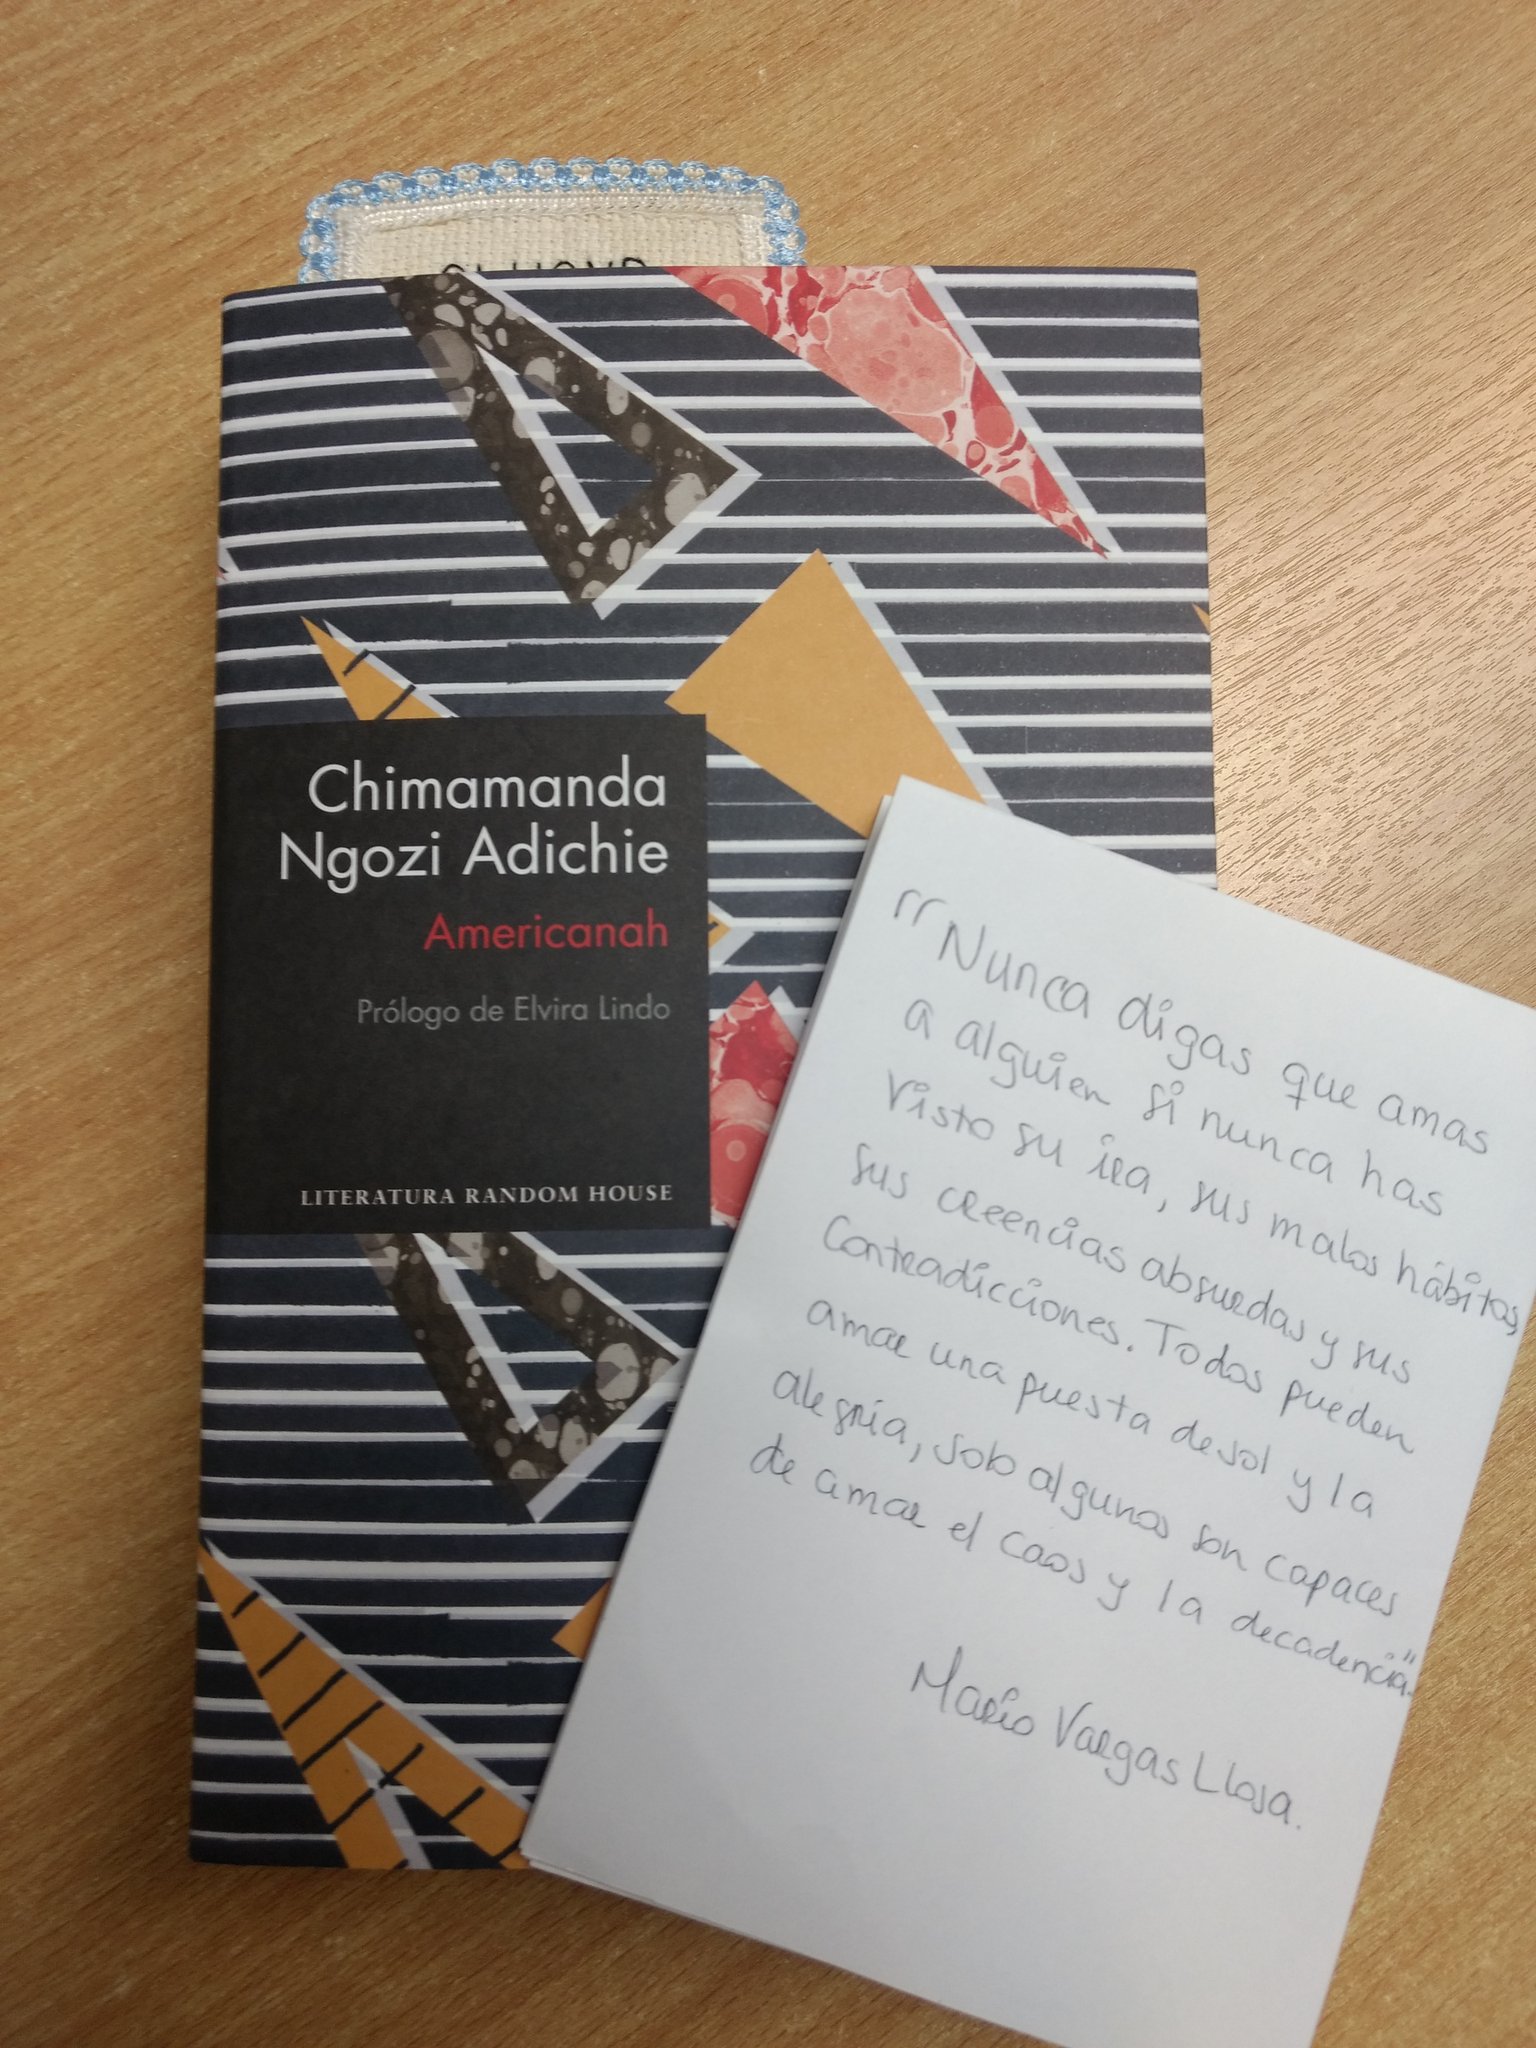 Chimamanda
Ngozi Adichie
Americanah
Prólogo de Elvira Lindo
LITERATURA RANDOM HOUSE
"Nunca digas que amas
a alguien si nunca has
visto su ira, sus malos hábitos,
sus creencias absurdas y sus
contradicciones. Todos pueden
amar una puesta de sol y la
alegría, solo algunos son capaces
de amar el caos y la decadencia".
Mario Vargas Llosa.